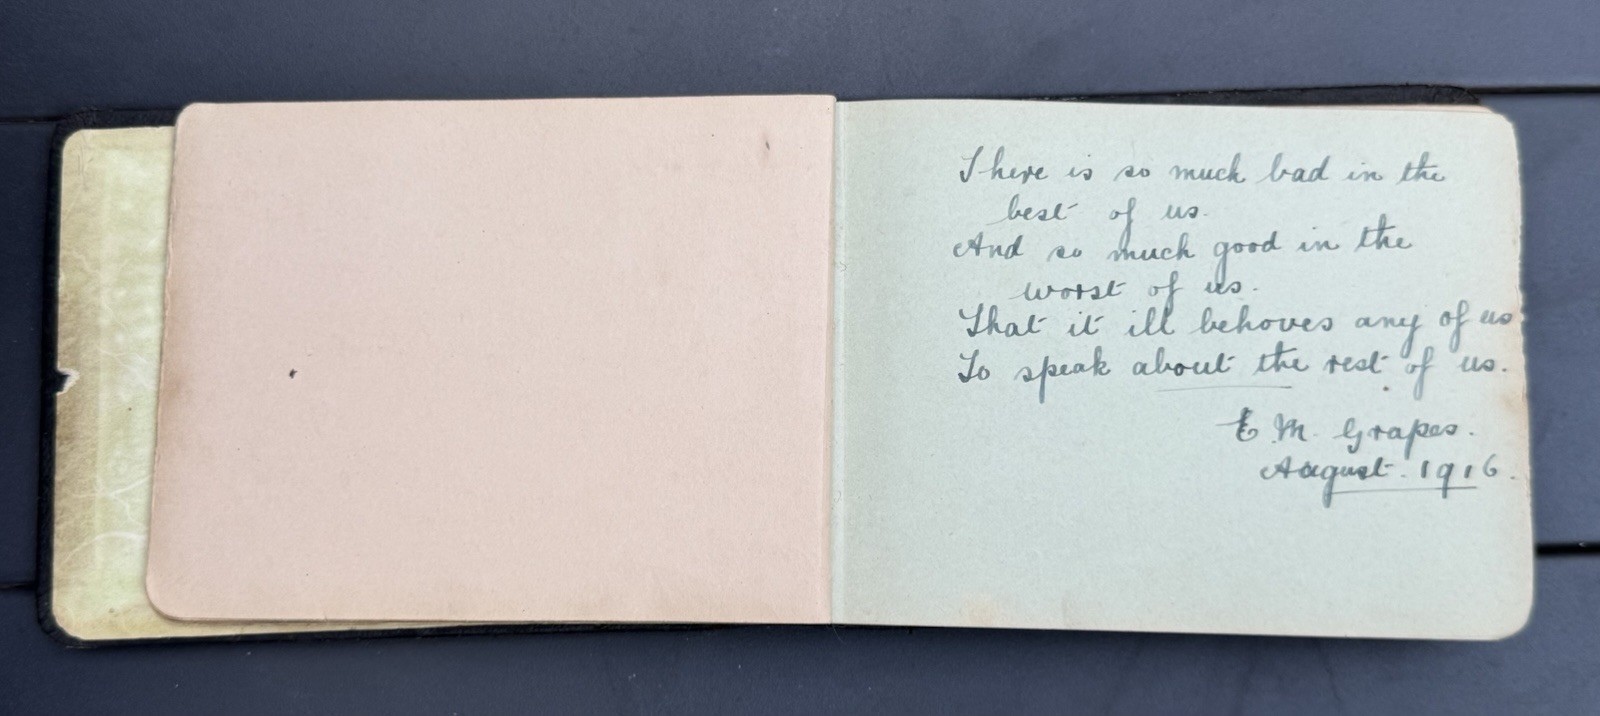 There is so much bad in the
best of us.
And so much good in the
worst of us.
That it ill behoves any of us
To speak about the rest of us.
E. M. Grapes.
August. 1916.